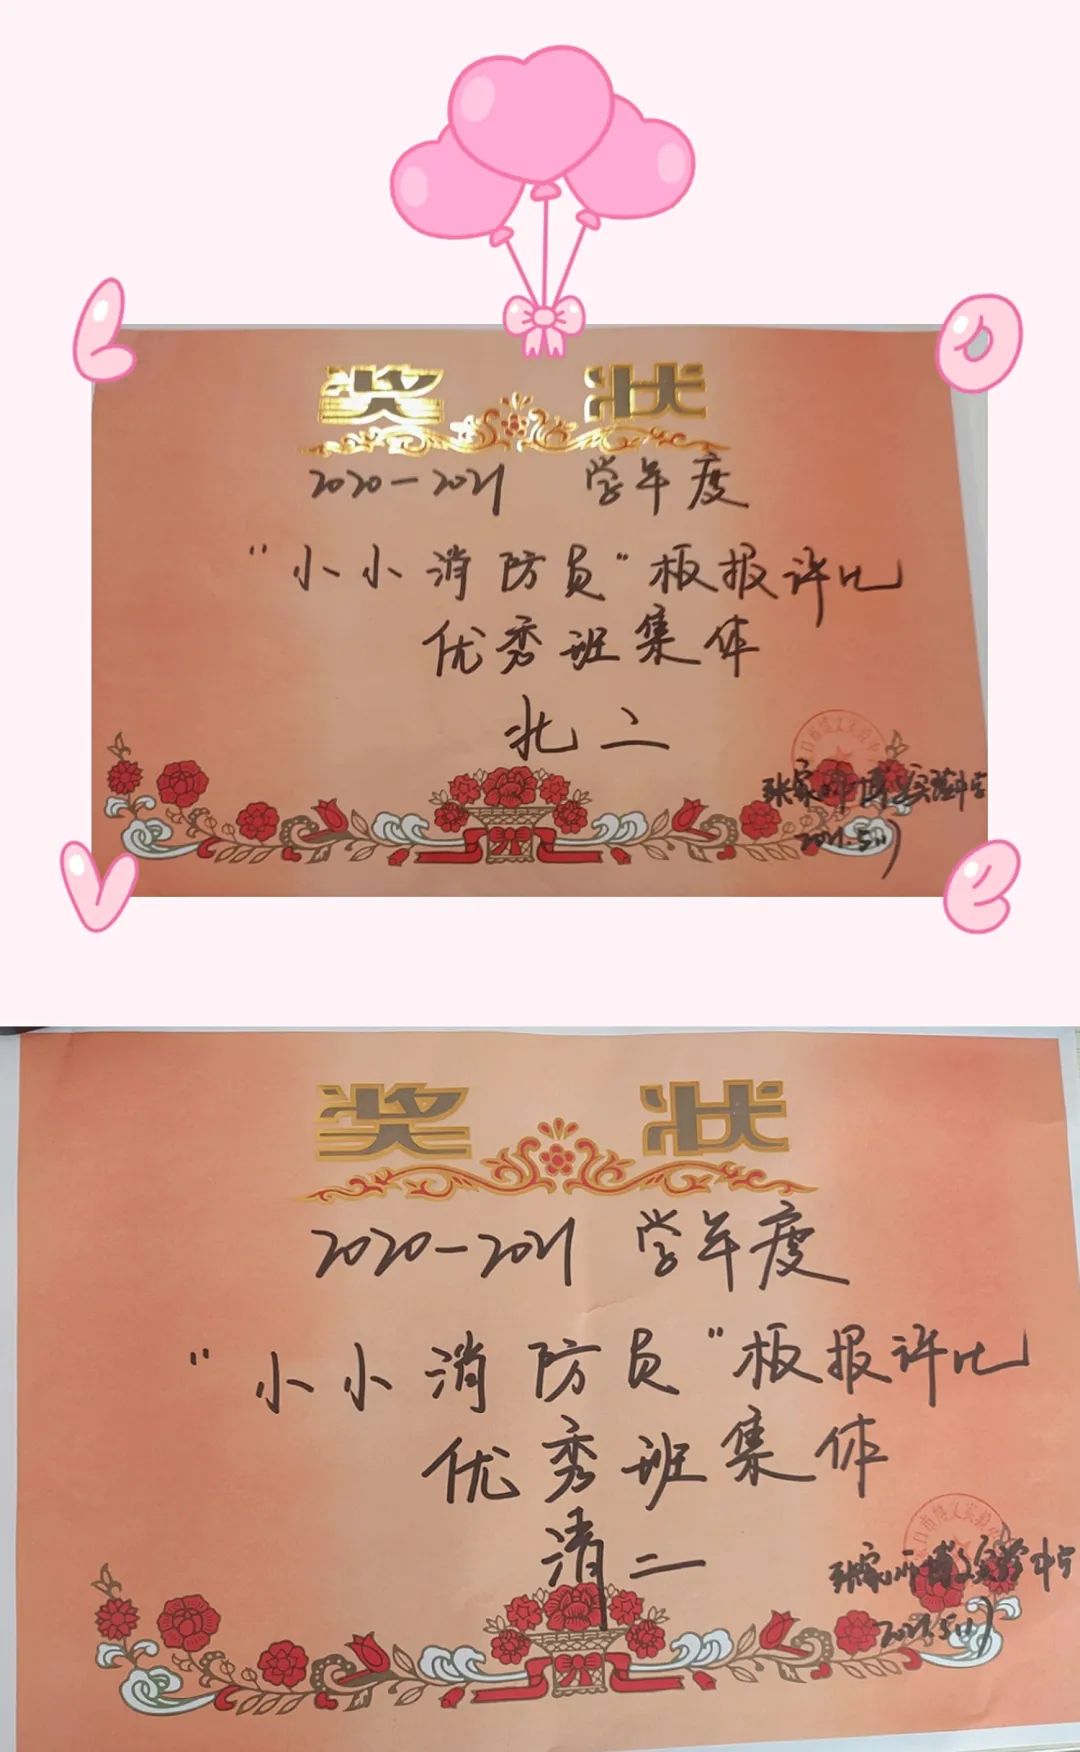 奖 状
2020-2021 学年度
"小小消防员"板报评比
优秀班集体
北二
张家口市博文实验中学
2021.5.11
奖 状
2020-2021 学年度
"小小消防员"板报评比
优秀班集体
清二
张家口市博文实验中学
2021.5.11